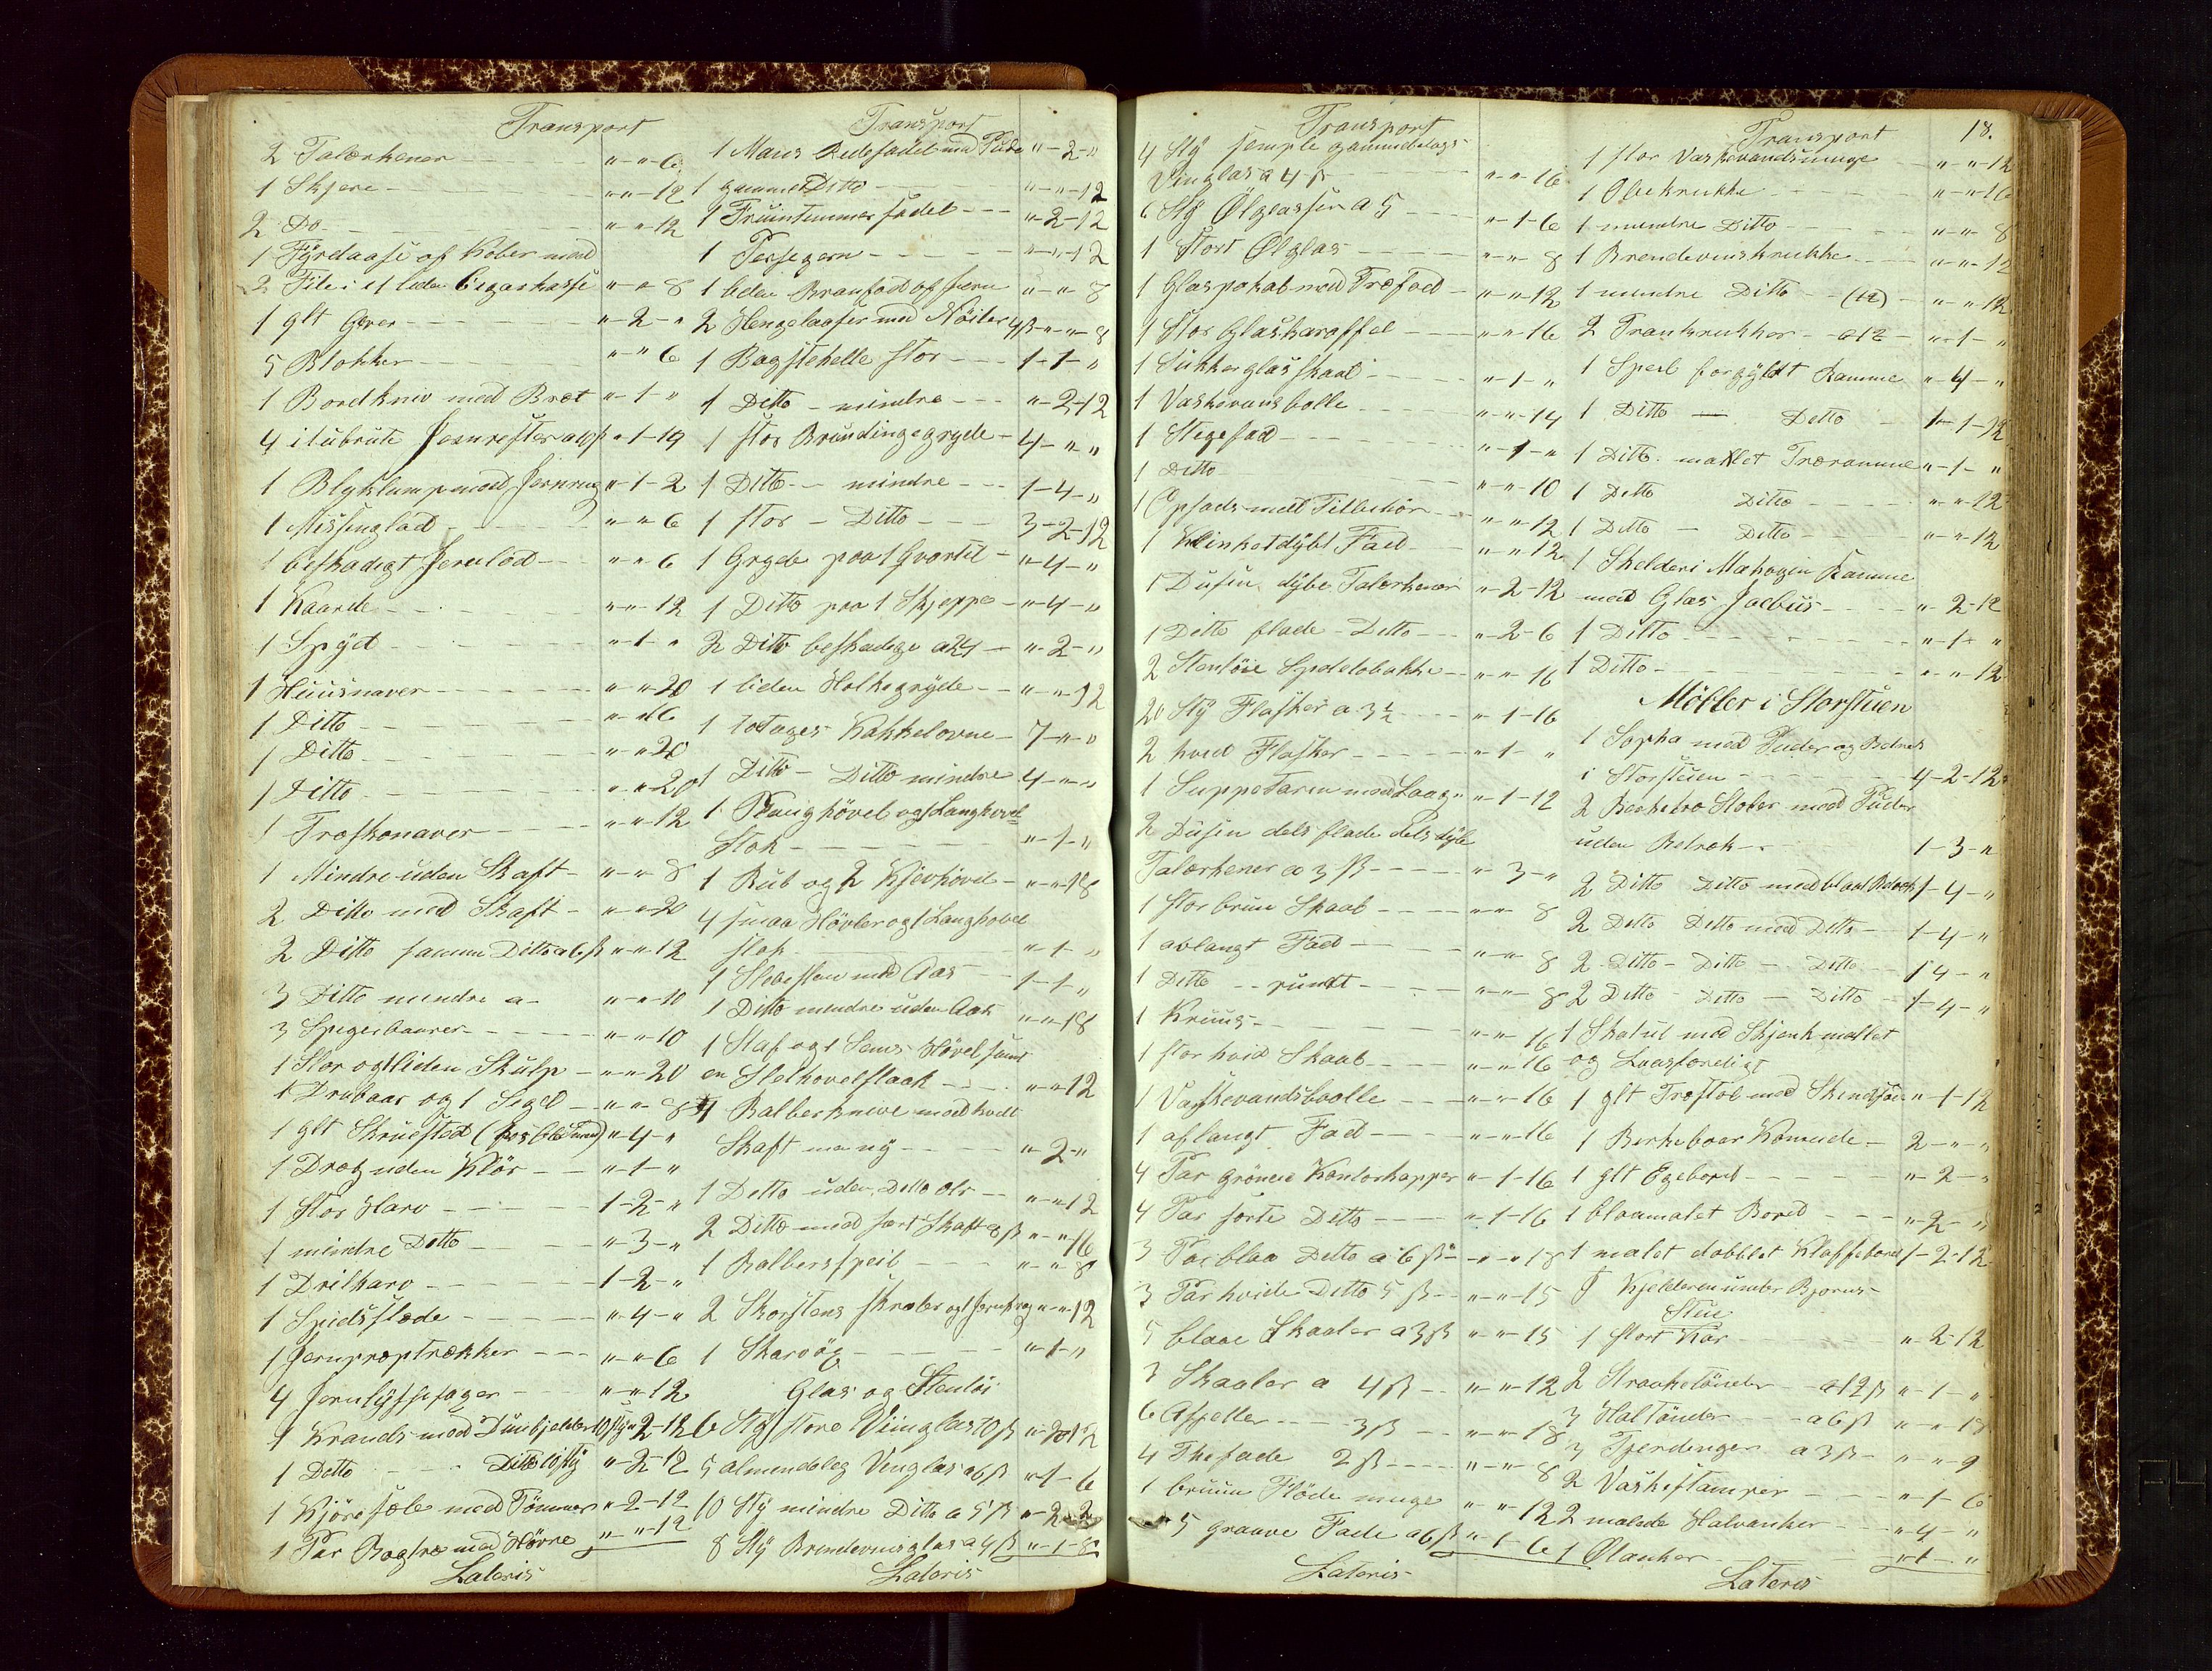 Transport
2 Talærkener - - - " - " - 6
1 Skjere - - - " - " - 12
2 Do - - - " - " - 12
1 Fyrdaase af Kober med
2 File i et liden Cigarkasse " - " - 8
1 glt Gever - - - " - 2 - "
5 Blokker - - - " - " 6
1 Bordkniv med Bræt " - 1 - "
4 itubrute Jernrester " - 1 - 19
1 Blyklump med Jernring " - 1 - 2
1 Missinglad - - - " - " 6
1 beskadigt Jernlod - - - " - " 6
1 Kaarde - - - " - " - 12
1 Spyd - - - " - 1 - "
1 Huusnaver - - - " - " - 20
1 Ditto - - - " - " 16
1 Ditto - - - " - " - 20
1 Ditto - - - " - " - 20
1 Træskonaver - - - " - " - 12
1 Mindre uden Skaft - " - " - 8
2 Ditto med Skaft - " - " - 20
2 Ditto samme Ditto a 6 ß " - " - 12
3 Ditto mindre a - " - " - 10
3 Spigerbaurer - - - " - " - 10
1 Stor og 1 liden Skulp - " - " - 20
1 Drabaar og 1 Segel - " - " - 8
1 glt Skruested " - 4 - "
1 Dræg uden Klör - - " - 1 - "
1 Stor Harv - - - 1 - 2 - "
1 mindre Ditto - - - " - 3 - "
1 Drilharv - - - 1 - 2 - "
1 Spidsslæde - - - " - 4 - "
1 Jernproptrækker - - - " - " - 6
4 Jernlyssefager - - - " - " - 12
1 Krands med Dunbjelder 10 Sty " - 2 - 12
1 Ditto - - Ditto 10 Sty " - 2 - 12
1 Kjöresæle med Tömmer " - 2 - 12
1 Par Bogtræ med Hövre " - " - 12
Lateris
Transport
1 Mans Ridesadel med Pude " - 2 - "
1 gammel Ditto - - - " - " - 12
1 Fruentimmer sadel - - - " - 2 - 12
1 Persejern - - - " - " - 12
1 liden Branfod af Jern " - " - 8
2 Hengelaaser med Nöiler 4 ß " - " - 8
1 Bagstehelle stor - - - 1 - 1 - "
1 Ditto - mindre - - - " - 2 - 12
1 stor Brundingsgryde - 4 - " - "
1 Ditto - - mindre - - - 1 - 4 - "
1 stor - Ditto - - - 3 - 2 - 12
1 Gryde paa 1 Qvartel - " - 4 - "
1 Ditto paa 1 Skjeppe - " - 4 - "
2 Ditto beskadige a 24 - " - 2 - "
1 liden Holkegryde - - " - " - 12
1 toetages Kakkelovne - 7 - " - "
1 Ditto - Ditto mindre 4 - " - "
1 Plaughövel og 1 Langhovel
Stok - - - " - 1 - "
1 Rub og 2 Kjevhövel - " - " - 18
4 smaa Hövler og 1 Langhovel
stok - - - " - 1 - "
1 Slebesten med Aas - - 1 - 1 - "
1 Ditto mindre uden Aas " - " - 18
1 Staf og 1 Sems Hövel samt
en Slethovelstaak - - - " - " - 12
1 Balberknive med hvidt
Skaft ma ny - - - " - 2 - "
1 Ditto uden Ditto - - " - " - 12
2 Ditto med sort Skaft 8 ß " - " - 16
1 Balberspeil - - - " - " - 8
2 Skorstens skraber og 1 Jernkrog " - " - 12
1 Skarvög - - - " - 1 - "
Glas og Stentöi
6 Sty store Viinglas 10 ß " - 2 - 12
5 almindeleg Vinglas a 6 ß " - 1 - 6
10 Sty mindre Ditto a 5 ß " - 2 - 2
8 Sty Brendevinsglas a 4 ß " - 1 - 8
Lateris
Transport
4 Sty semple gammeldags
Vinglas a 4 ß - - - " - " 16
6 Sty Ölglasser a 5 - - - " - 1 - 6
1 Stort Ölglas - - - " - " - 8
1 Glaspokal med Træfoed - " - " - 12
1 Stor Glaskaraffel - - - " - " - 16
1 Sukkerglasskaal - - - " - 1 - "
1 Vaskevansbolle - - - " - " - 14
1 Stegefad - - - " - 1 - "
1 Ditto - - - " - " - 10
1 Opsads med Tilbehör - - " - " - 12
1 Klinket dybt Fad - - " - " - 12
1 Dusin dybe Talærkener " - 2 - 12
1 Ditto flade - Ditto - - " - 2 - 6
2 Stentöie Spidelobakke - " - " - 16
20 Sty Flasker a 3½ - - " - 1 - 16
2 hvid Flasker - - - " - 1 - "
1 Suppetarin med Laag " - 1 - 12
2 Dusin dels flade dels dybe
Talærkener a 3 ß - - - " - 3 - "
1 Stor brun Skaal - - - " - " - 8
1 avlangt Fad - - - " - " - 8
1 Ditto - - rundt - - - " - " - 8
1 Kruus - - - " - " - 16
1 stor hvid Skaal - - - " - " - 16
1 Vaskevandsbolle - - - " - " - 16
1 aflangt Fad - - - " - " - 16
4 Par grönne Kontorkopper " - 1 - 16
4 Par sorte Ditto - - - " - 1 - 16
3 Par blaa Ditto a 6 ß - " - " - 18
3 Par hvide Ditto 5 ß - - " - " - 15
5 blaae Skaaler a 3 ß " - " - 15
3 Skaaler a 4 ß - - " - " - 12
6 Asjetter - - - 3 ß - - " - " - 18
4 Thefade 2 ß - - - " - " - 8
1 bruun Flöde mugge " - " - 12
5 graave Fade a 6 ß " - 1 - 6
Lateris
18.
Transport
1 stor Vaskevandsmuge - " - " - 12
1 Oliekrukke - - - " - " - 16
1 mindre Ditto - - - " - " 8
1 Brendevinskrukke - - - " - " - 12
1 mindre Ditto - - (12) - " - " - 12
2 Trankrukker - - a 12 - " - 1 - "
1 Speil forgyldt Ramme " - 4 - "
1 Ditto - Ditto - 1 - 1 - 12
1 Ditto mallet Træramme " - 1 - "
1 Ditto Ditto - - - " - " - 12
1 Ditto - Ditto - - - " - " - 12
1 Skelderi Mahogin Ramme
med Glas Jacbus - - - " - 2 - 12
1 Ditto - - - " - 1 - "
1 Ditto - - - " - " - 12
Möbler i Storstuen
1 Sopha med Puder og Betræk
i Storstuen - - - 4 - 2 - 12
2 Berketræ Stoler med Puder
uden Betræk - - 1 - 3 - "
2 Ditto Ditto med blaat Betræk 1 - 4 - "
2 Ditto Ditto med Ditto - 1 - 4 - "
2 Ditto - Ditto - Ditto - 1 4 - "
2 Ditto - Ditto - Ditto - 1 - 4 - "
1 Skatul med Skjenk mallet
og Laasfærdigt
1 glt Træstol med Skindsæde " - 1 - 12
1 Berkebaar Komude - 2 - " - "
1 glt Egebord - - - " - 2 - "
1 blaamalet Bord - - - " - 2 - "
1 malet dobblet Klaffebord 1 - 2 - 12
I Kjelderen under Bjorns -
Stue
1 stort Kar - - - " - 2 - 12
2 Straaketönder - a 12 ß " - 1 - "
3 Haltönder - - a 6 ß " - " - 18
3 Fjerdinger a 3 ß - " - " - 9
2 Vaskestamper - - - " - 1 - 6
2 malede Halvanker - - " - 4 - "
1 Ølanker - - - " - 1 - "
Lateris